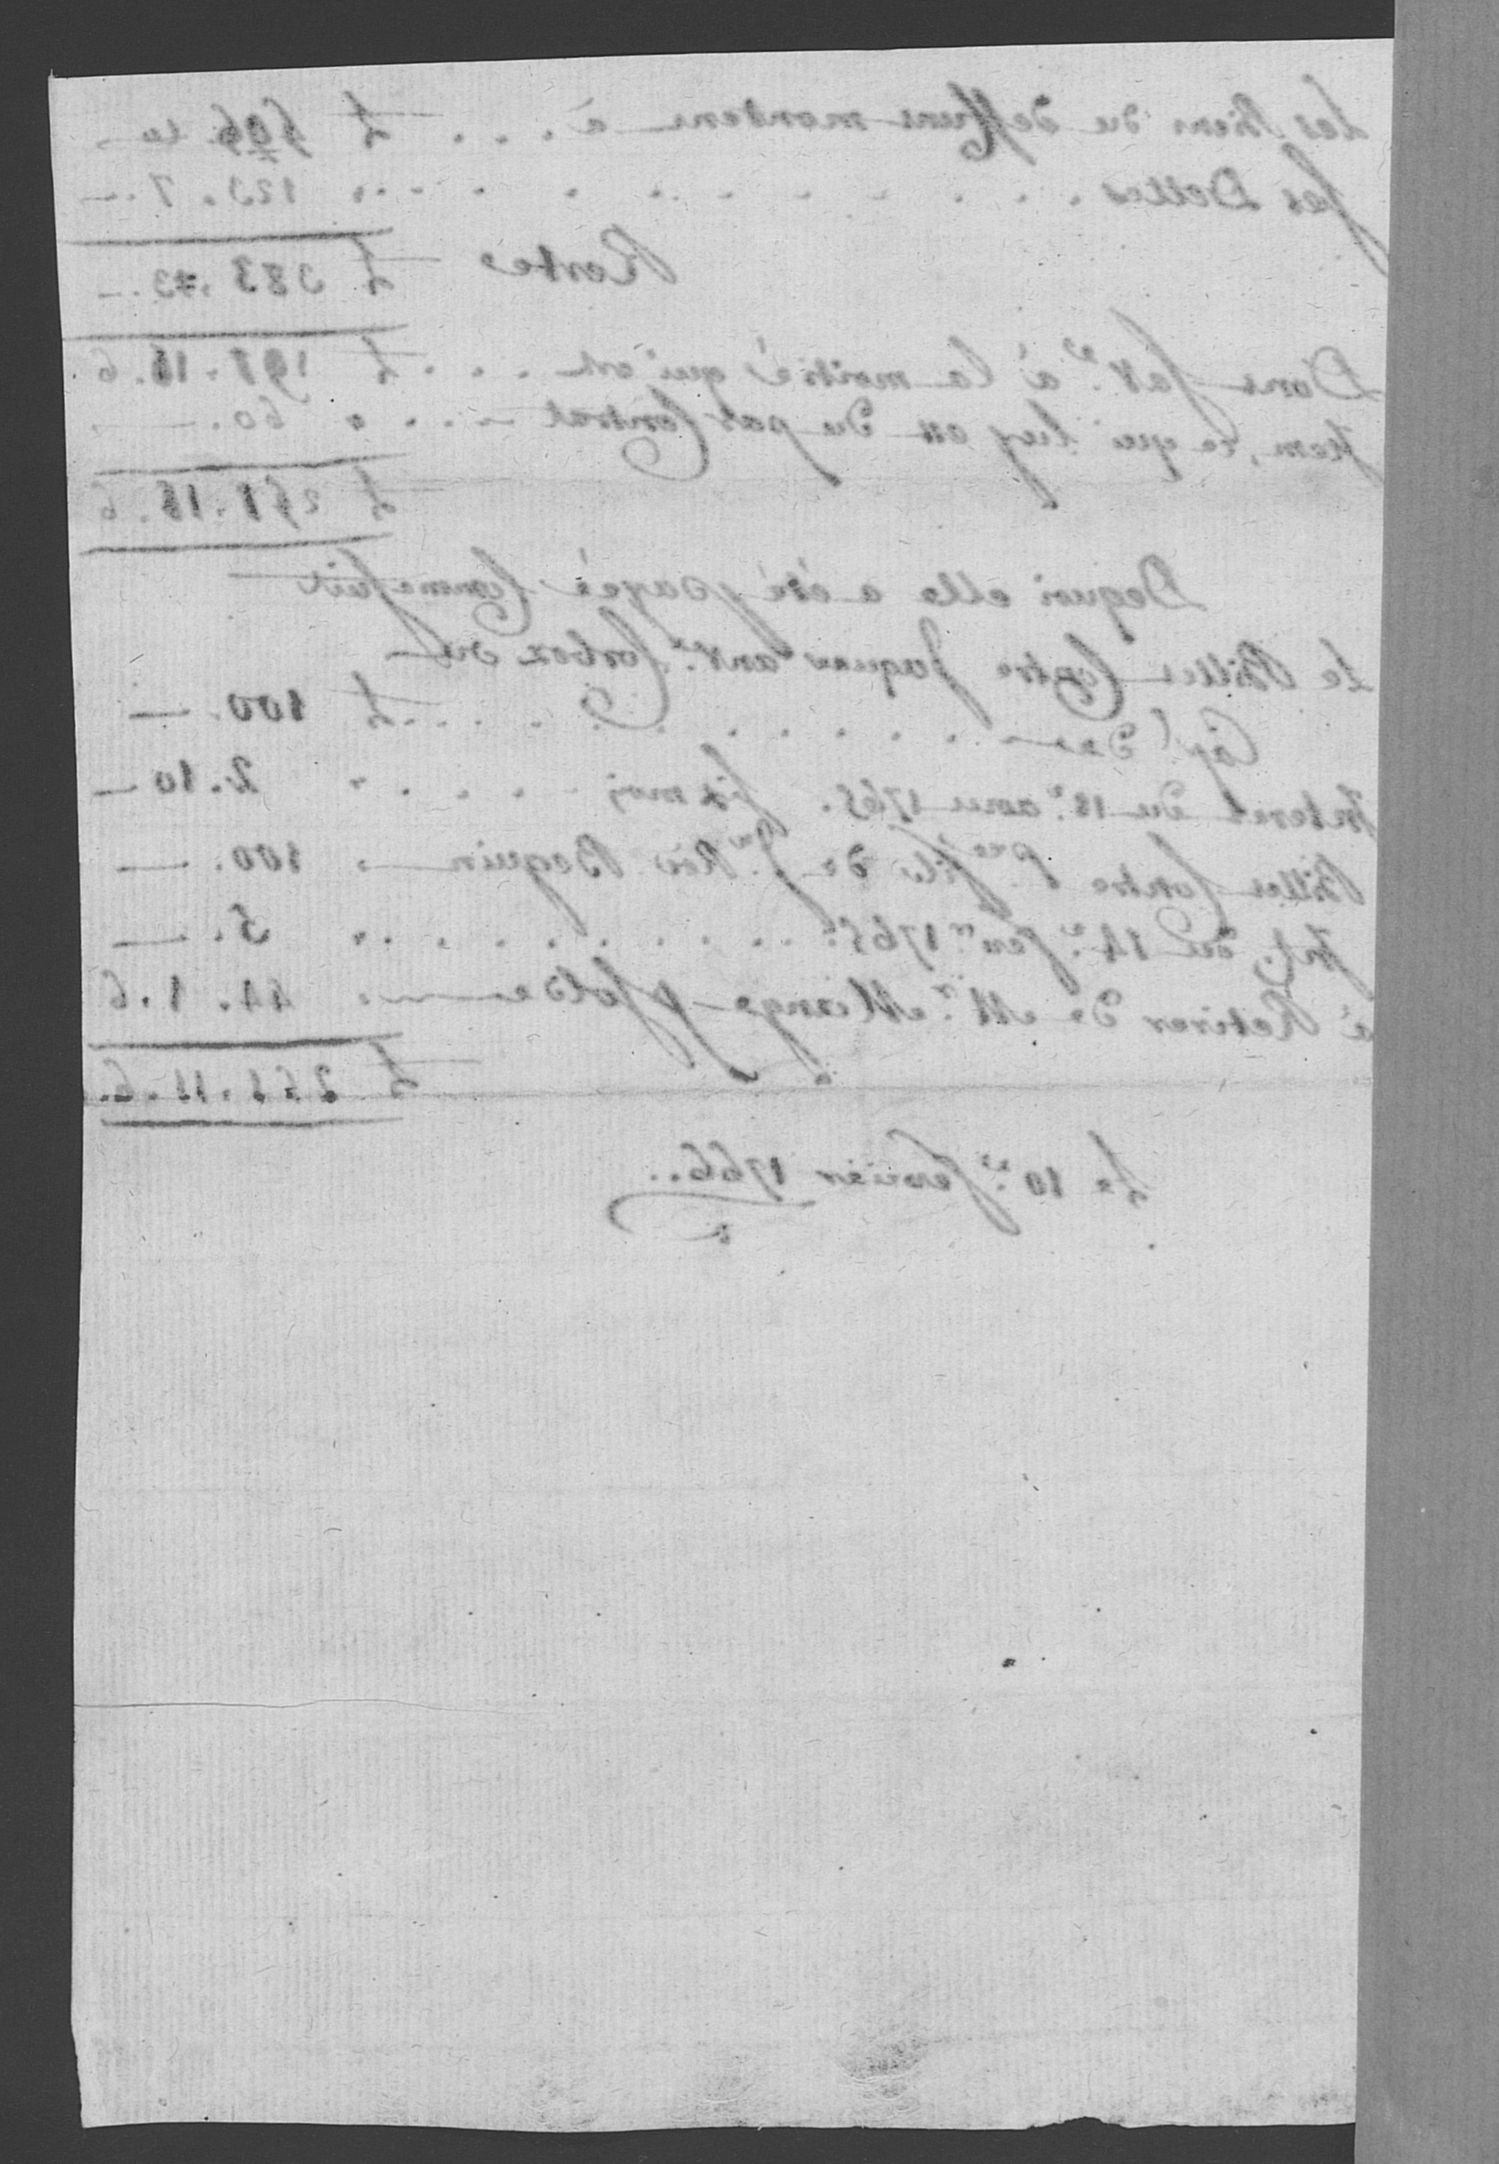 Les Biens du deffunt montent à .... £ 506. 10 —
Ses Dettes . . . . . . . . . . . " 123. 7. —
Reste £ 383. 3. —
Dont la moitié qui est .... £ 191. 11. 6.
Item, ce qui luy est du par Contrat .... " 60. —
£ 251. 11. 6
Dequoi elle a été payée Comme suit
Le Billet Contre Jaques du
Cap.l de . . . . . . . . . £ 100. —
Interet du 18.e 1765. six moj .... " 2. 10 —
Billet Contre fils de Beguin " 100. —
Int. du 14.e 1765. . . . . . . . . " 5. —
à Retirer de M.r solde " 44. 1. 6
£ 251. 11. 6.
Le 10.e fevrier 1766.